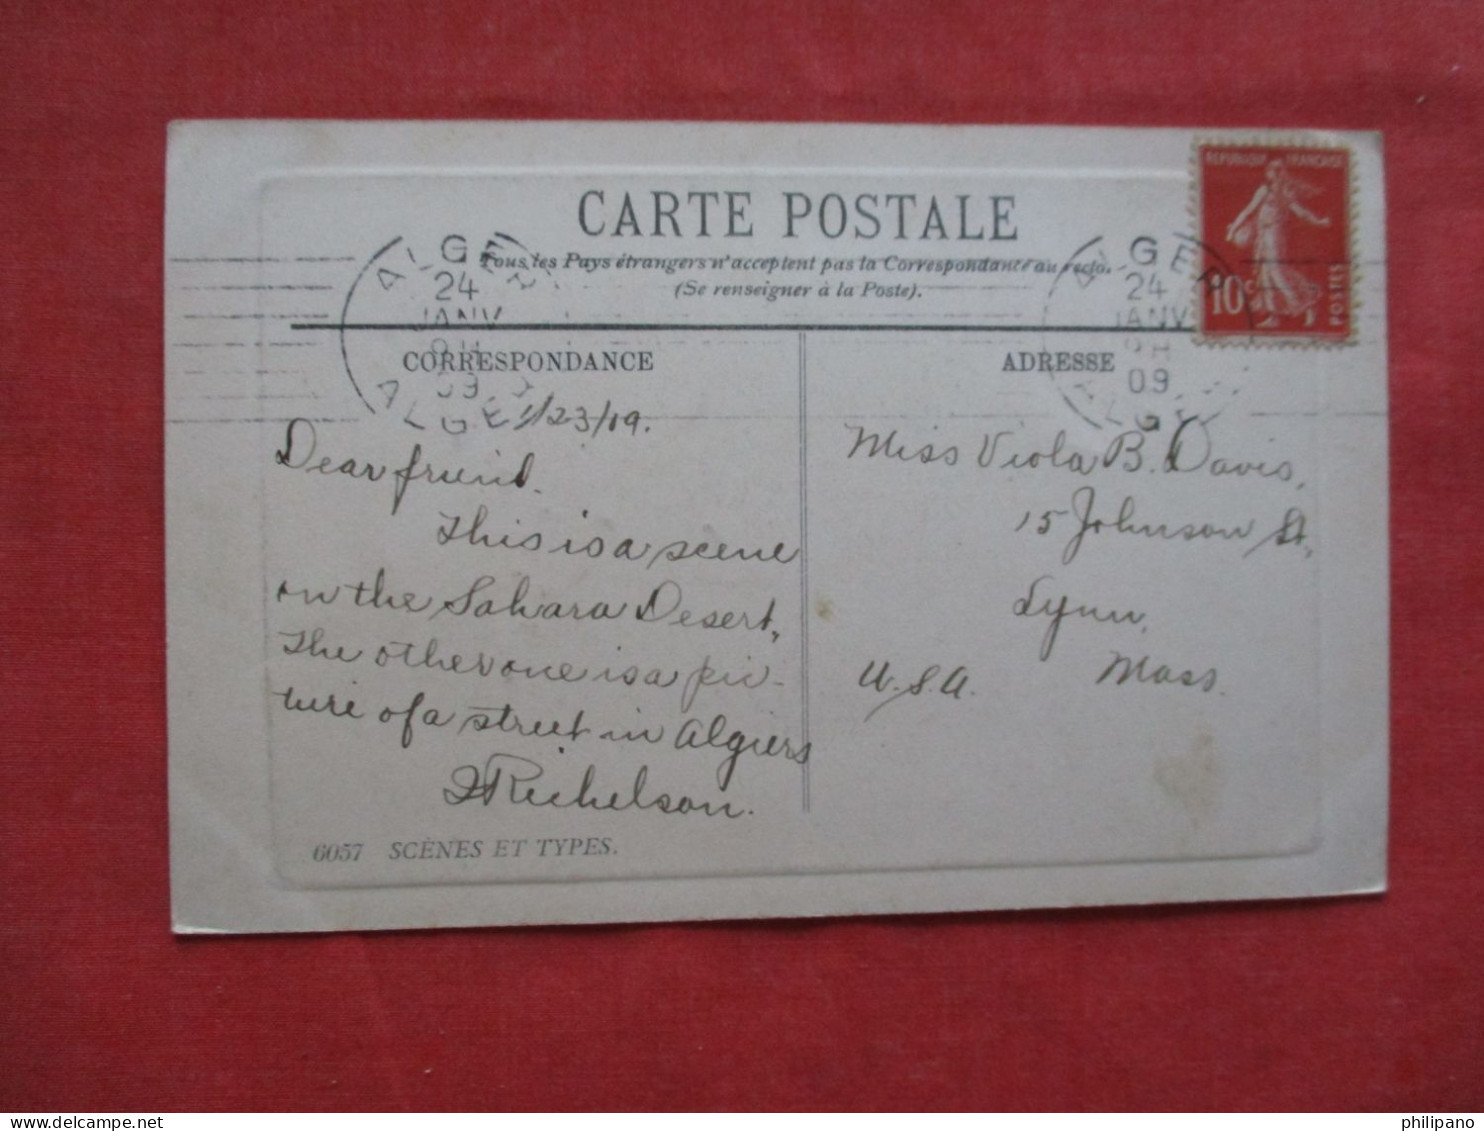 CARTE POSTALE
Tous les Pays étrangers n'acceptent pas la Correspondance au recto.
(Se renseigner à la Poste).
REPUBLIQUE FRANÇAISE
10c
POSTES
ALGER
24
JANV
ALGER
ALGER
24
JANV
09
ALGER
CORRESPONDANCE
1/23/09.
Dear friend.
This is a scene
on the Sahara Desert,
The other one is a pic-
ture of a street in Algiers
Richelson.
6057 SCÈNES ET TYPES.
ADRESSE
Miss Viola B. Davis,
15 Johnson St.,
Lynn,
Mass.
U.S.A.
philipano